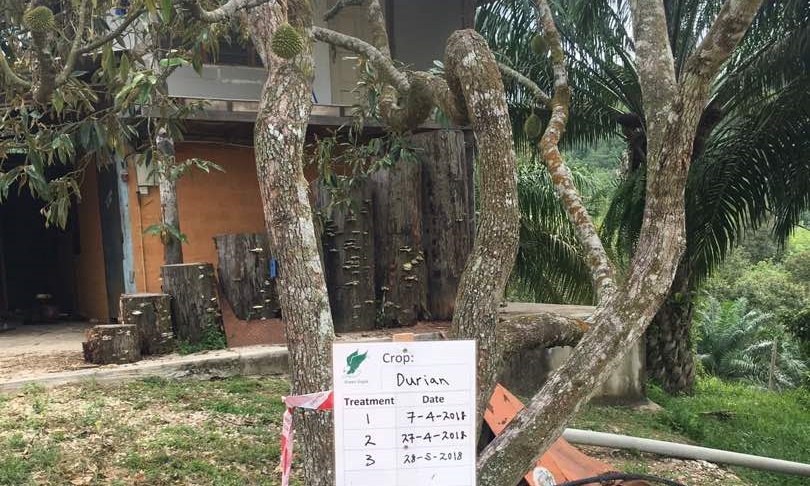 Crop:
Durian
Treatment Date
1 7-4-2018
2 27-4-2018
3 28-5-2018